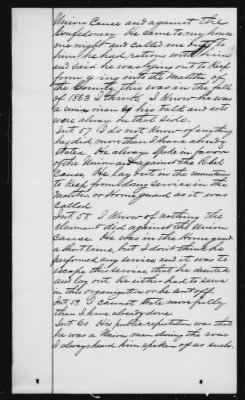 Union Cause and against the
Confederacy He came to my house
one night and called me out to
him he had rations with him
and said he was lying out to keep
from going into the Malitia of
the County, this was in the fall
of 1863 I think, I know he was
a union man by his talk and acts
were always on that side.
Int. 57 I do not know of anything
he did more than I have already
stated. He always spoke in favor
of the Union and against the Rebel
Cause, He lay out in the mountains
to keep from doing service in the
Malitia or Homeguard as it was
called.
Int. 58 I know of nothing the
claimant did against the Union
cause. He was in the Home guard
a short time, but I don't think he
performed any service and it was to
escape this service, that he deserted
and lay out, He either had to serve
in this organization or be sent off.
Int. 59 I cannot state more fully
than I have already done
Int 60 His public reputation was that
he was a Union man during the war
I always heard him spoken of as such.